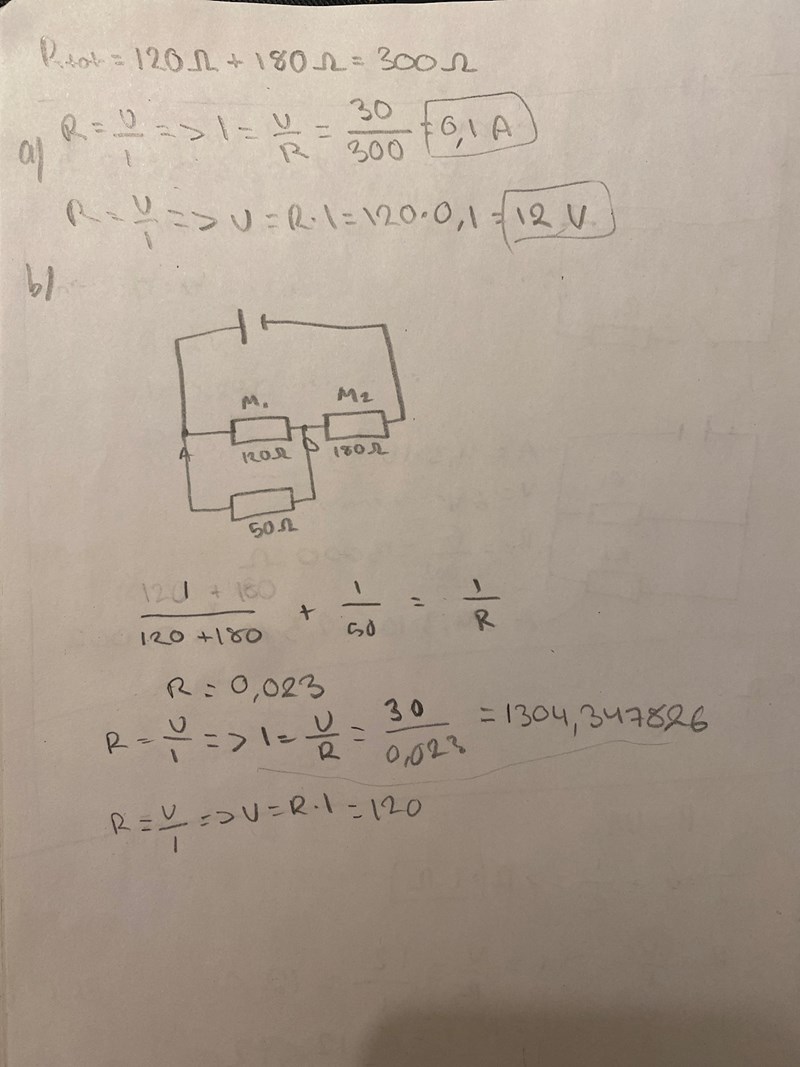 Rtot = 120Ω + 180Ω = 300Ω
a) R = U/I => I = U/R = 30/300 = 0,1 A
R = U/I => U = R·I = 120·0,1 = 12 V
b)
M1 M2
A 120Ω 180Ω
50Ω
1/(120+180) + 1/50 = 1/R
R = 0,023
R = U/I => I = U/R = 30/0,023 = 1304,347826
R = U/I => U = R·I = 120